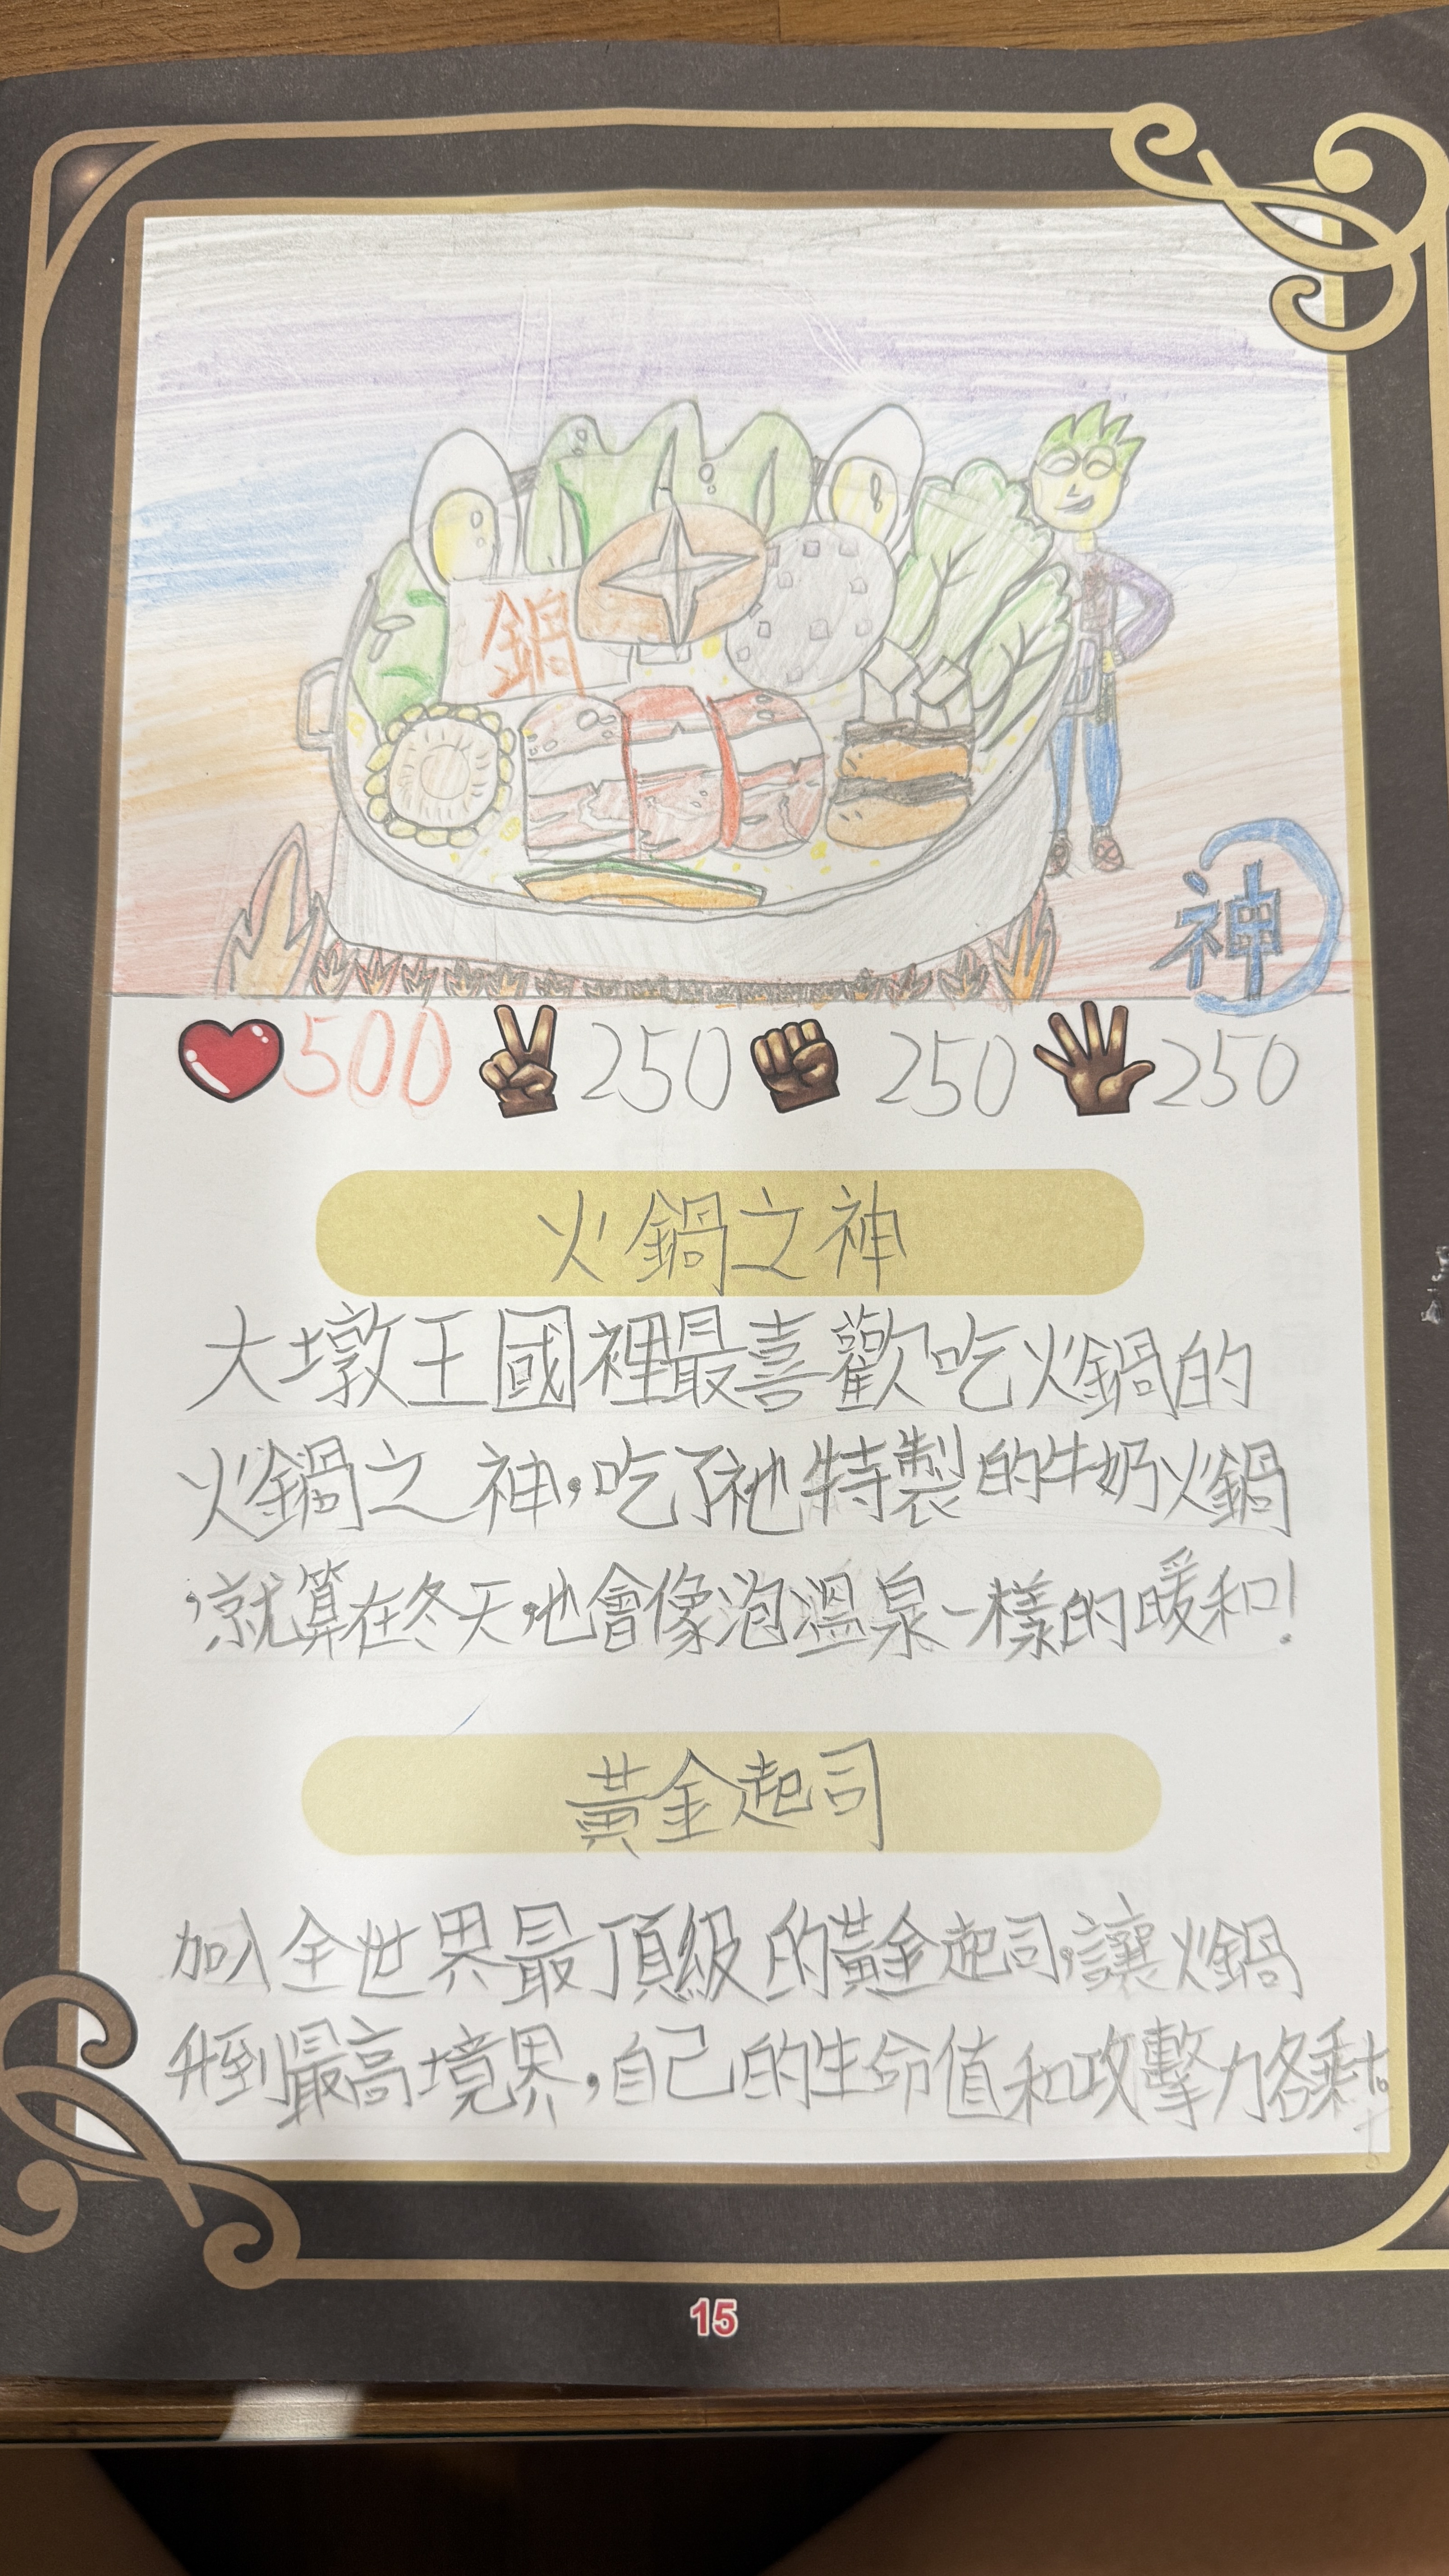 鍋
神
500 250 250 250
火鍋之神
大墩王國裡最喜歡吃火鍋的
火鍋之神,吃了祂特製的牛奶火鍋
,就算在冬天,也會像泡溫泉一樣的暖和!
黃金起司
加入全世界最頂級的黃金起司,讓火鍋
升到最高境界,自己的生命值和攻擊力各乘
15